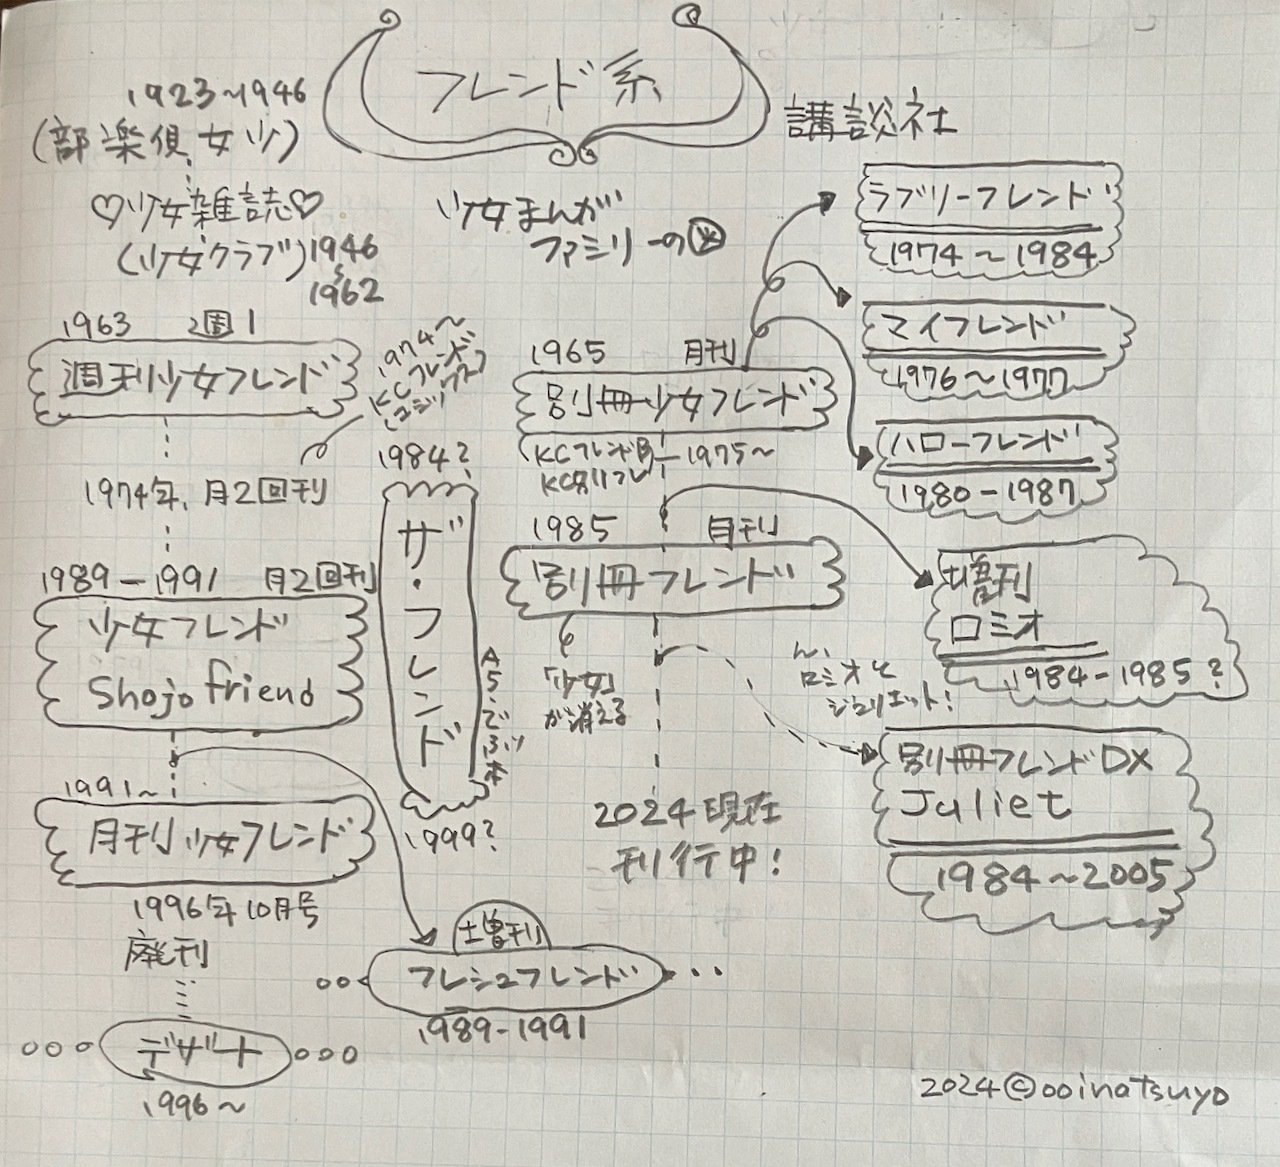 フレンド系
講談社
1923〜1946
(部楽倶女少)
♡少女雑誌♡
(少女クラブ)1946
〜
1962
少女まんが
ファミリーの図
1963 2週1
週刊少女フレンド
1974〜
KCフレンド
(コミックス)
1974年、月2回刊
1989-1991 月2回刊
少女フレンド
Shojo friend
1991〜
月刊少女フレンド
1996年10月号
廃刊
デザート
1996〜
1984?
ザ・フレンド
A5、でぶい本
1999?
増刊
フレシュフレンド
1989-1991
1965 月刊
別冊少女フレンド
KCフレンドB
KC別フレ
1975〜
1985 月刊
別冊フレンド
「少女」
が消える
2024現在
刊行中!
ラブリーフレンド
1974〜1984
マイフレンド
1976〜1977
ハローフレンド
1980-1987
増刊
ロミオ
1984-1985?
ん、
ロミオと
ジュリエット!
別冊フレンドDX
Juliet
1984〜2005
2024©ooinatsuyo